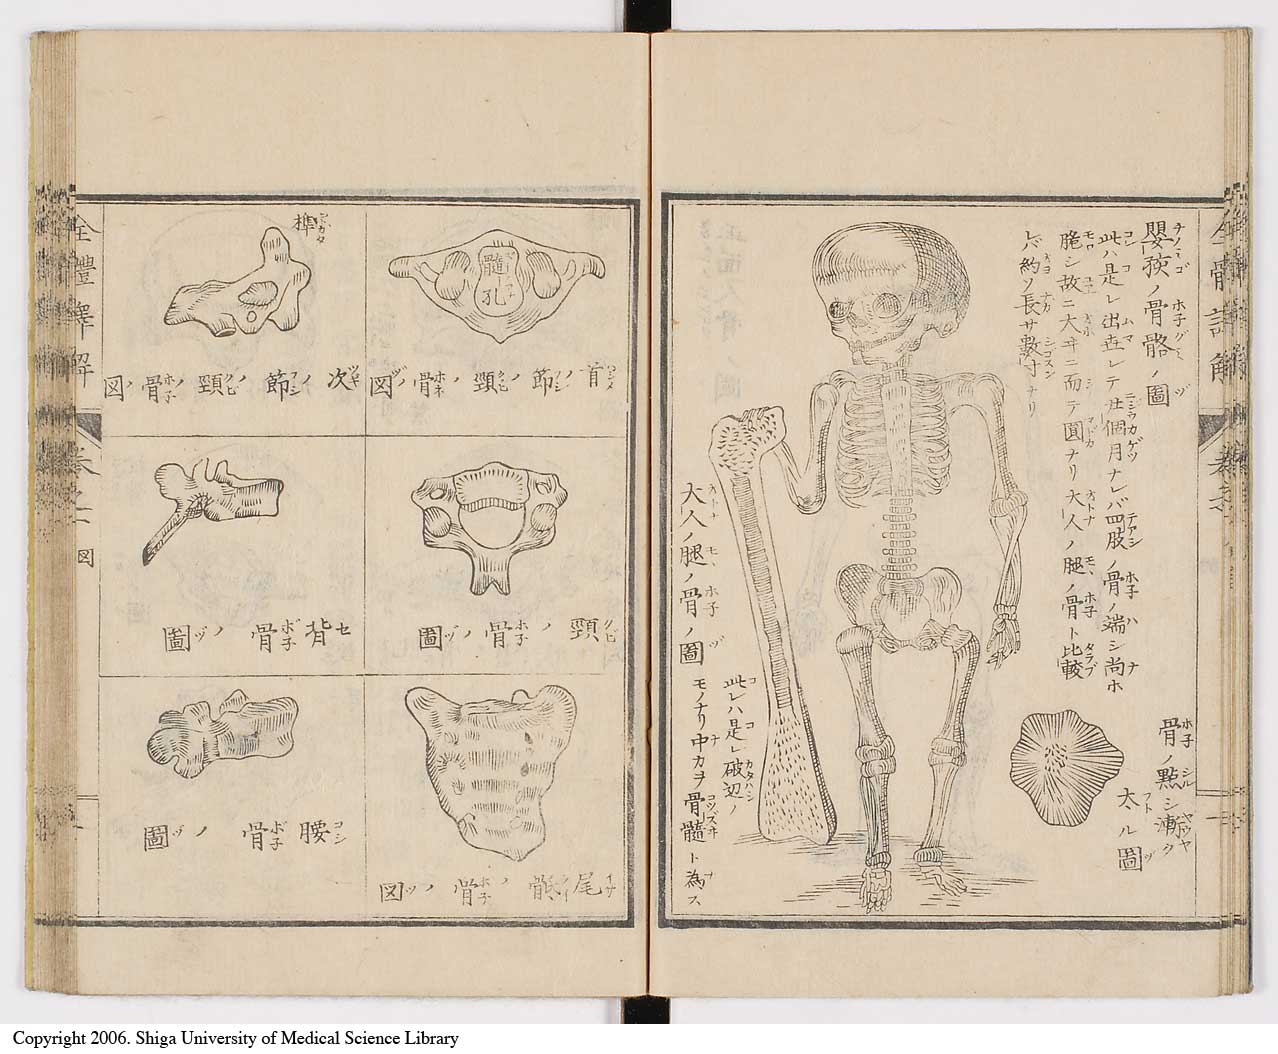 嬰孩ノ骨骼ノ圖
此ハ是レ出世レテ廿個月ナレバ四肢ノ骨ノ端シ尚ホ
脆シ故ニ大ヰニ而テ圓ナリ大人ノ腿ノ骨ト比較
レバ約ソ長サ數寸ナリ
骨ノ點シ漸ク
太ル圖
大人ノ腿ノ骨ノ圖
此レハ是レ破辺ノ
モノナリ中カヲ骨髓ト為ス
髓孔
首ノ節ノ頸ノ骨ノ図
榫
次ノ節ノ頸ノ骨ノ図
頸ノ骨ノ圖
背骨ノ圖
尾骶ノ骨ノ図
腰骨ノ圖
全體
Copyright 2006. Shiga University of Medical Science Library